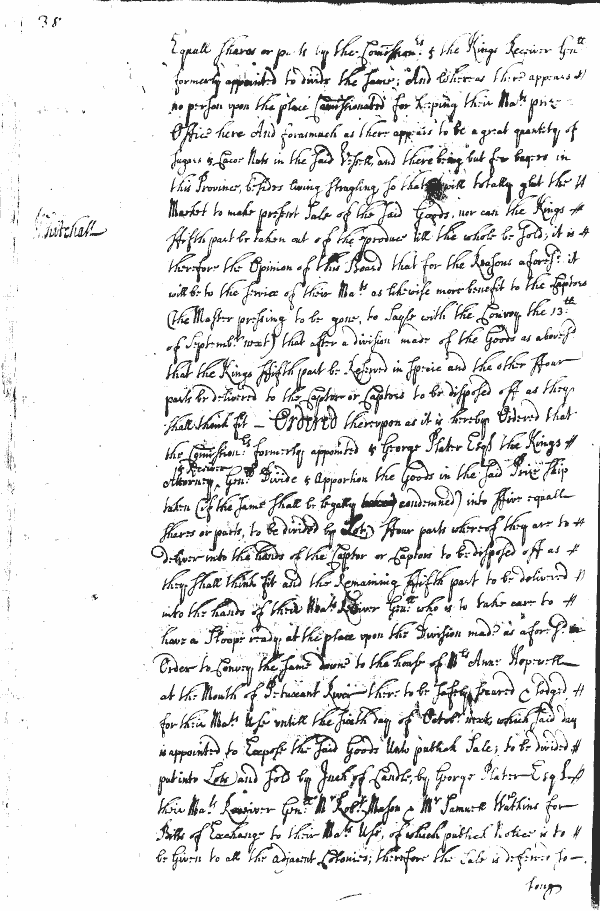 38
Equall shares or pts by the Comission.rs & the Kings Receiver Genll
formerly appointed to divide the same; And whereas there appears
no person upon the place Comissionated for keeping their Mats prize
Office here And forasmuch as there appears to be a great quantity of
Sugars & Cacoe Nutts in the said Vessell, and there being but few buyers in
this Province, besides living stragling so that will totally glut the
Whitehall
Market to make present Sale of the said Goods, nor can the Kings
ffifth part be taken out of the produce till the whole be sold; it is
therefore the Opinion of this Board that for the Reasons aforesd. it
will be to the service of their Mats as likewise more benefit to the Captors
(the Master pressing to be gone, to sayle with the Convoy the 13th
of Septembr. next) that after a division made of the Goods as aforesd
that the Kings ffifth part be Reserved in Specie and the other ffour
parts be delivered to the Captor or Captors to be disposed off as they
shall think fit — Ordered thereupon as it is hereby Ordered that
the Comission.rs formerly appointed & George Plater Esqr the Kings
& Receiver
Attorney Genll Divide & Apportion the Goods in the said Prize Ship
taken (if the same shall be legally condemned) into ffive equall
shares or parts, to be divided by Lots) ffour parts whereof they are to
deliver into the hands of the Captor or Captors to be disposed off as
they shall think fit and the Remaining ffifth part to be delivered
into the hands of their Mats Receiver Genll who is to take care to
have a Sloope ready at the place upon the Division made as aforesd. in
Order to Convey the same downe to the house of Mrs Anne Hopewell
at the Mouth of Petuxant River there to be safely secured & lodged
for their Mats Use untill the sixth day of Octobr next, which said day
is appointed to Expose the said Goods unto publick Sale; to be divided
put into Lots and sold by Inch of Candle, by George Plater Esqr
their Mats Receiver Genll Mr Robt. Mason & Mr Samuell Watkins for
Bills of Exchange to their Mats Use, of which publick Notice is to
be Given to all the Adjacent Colonies; therefore the Sale is deferred so
long